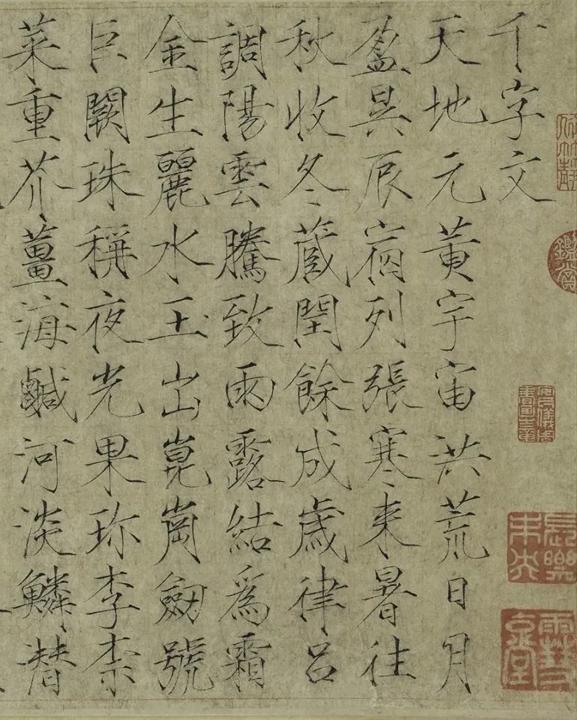 千字文
天地元黄宇宙洪荒日月
盈昃辰宿列張寒来暑往
秋收冬蔵閏餘成歳律呂
調陽雲騰致雨露結爲霜
金生麗水玉出崑崗劍號
巨闕珠稱夜光果珎李柰
菜重芥薑海鹹河淡鱗潛
鑑賞